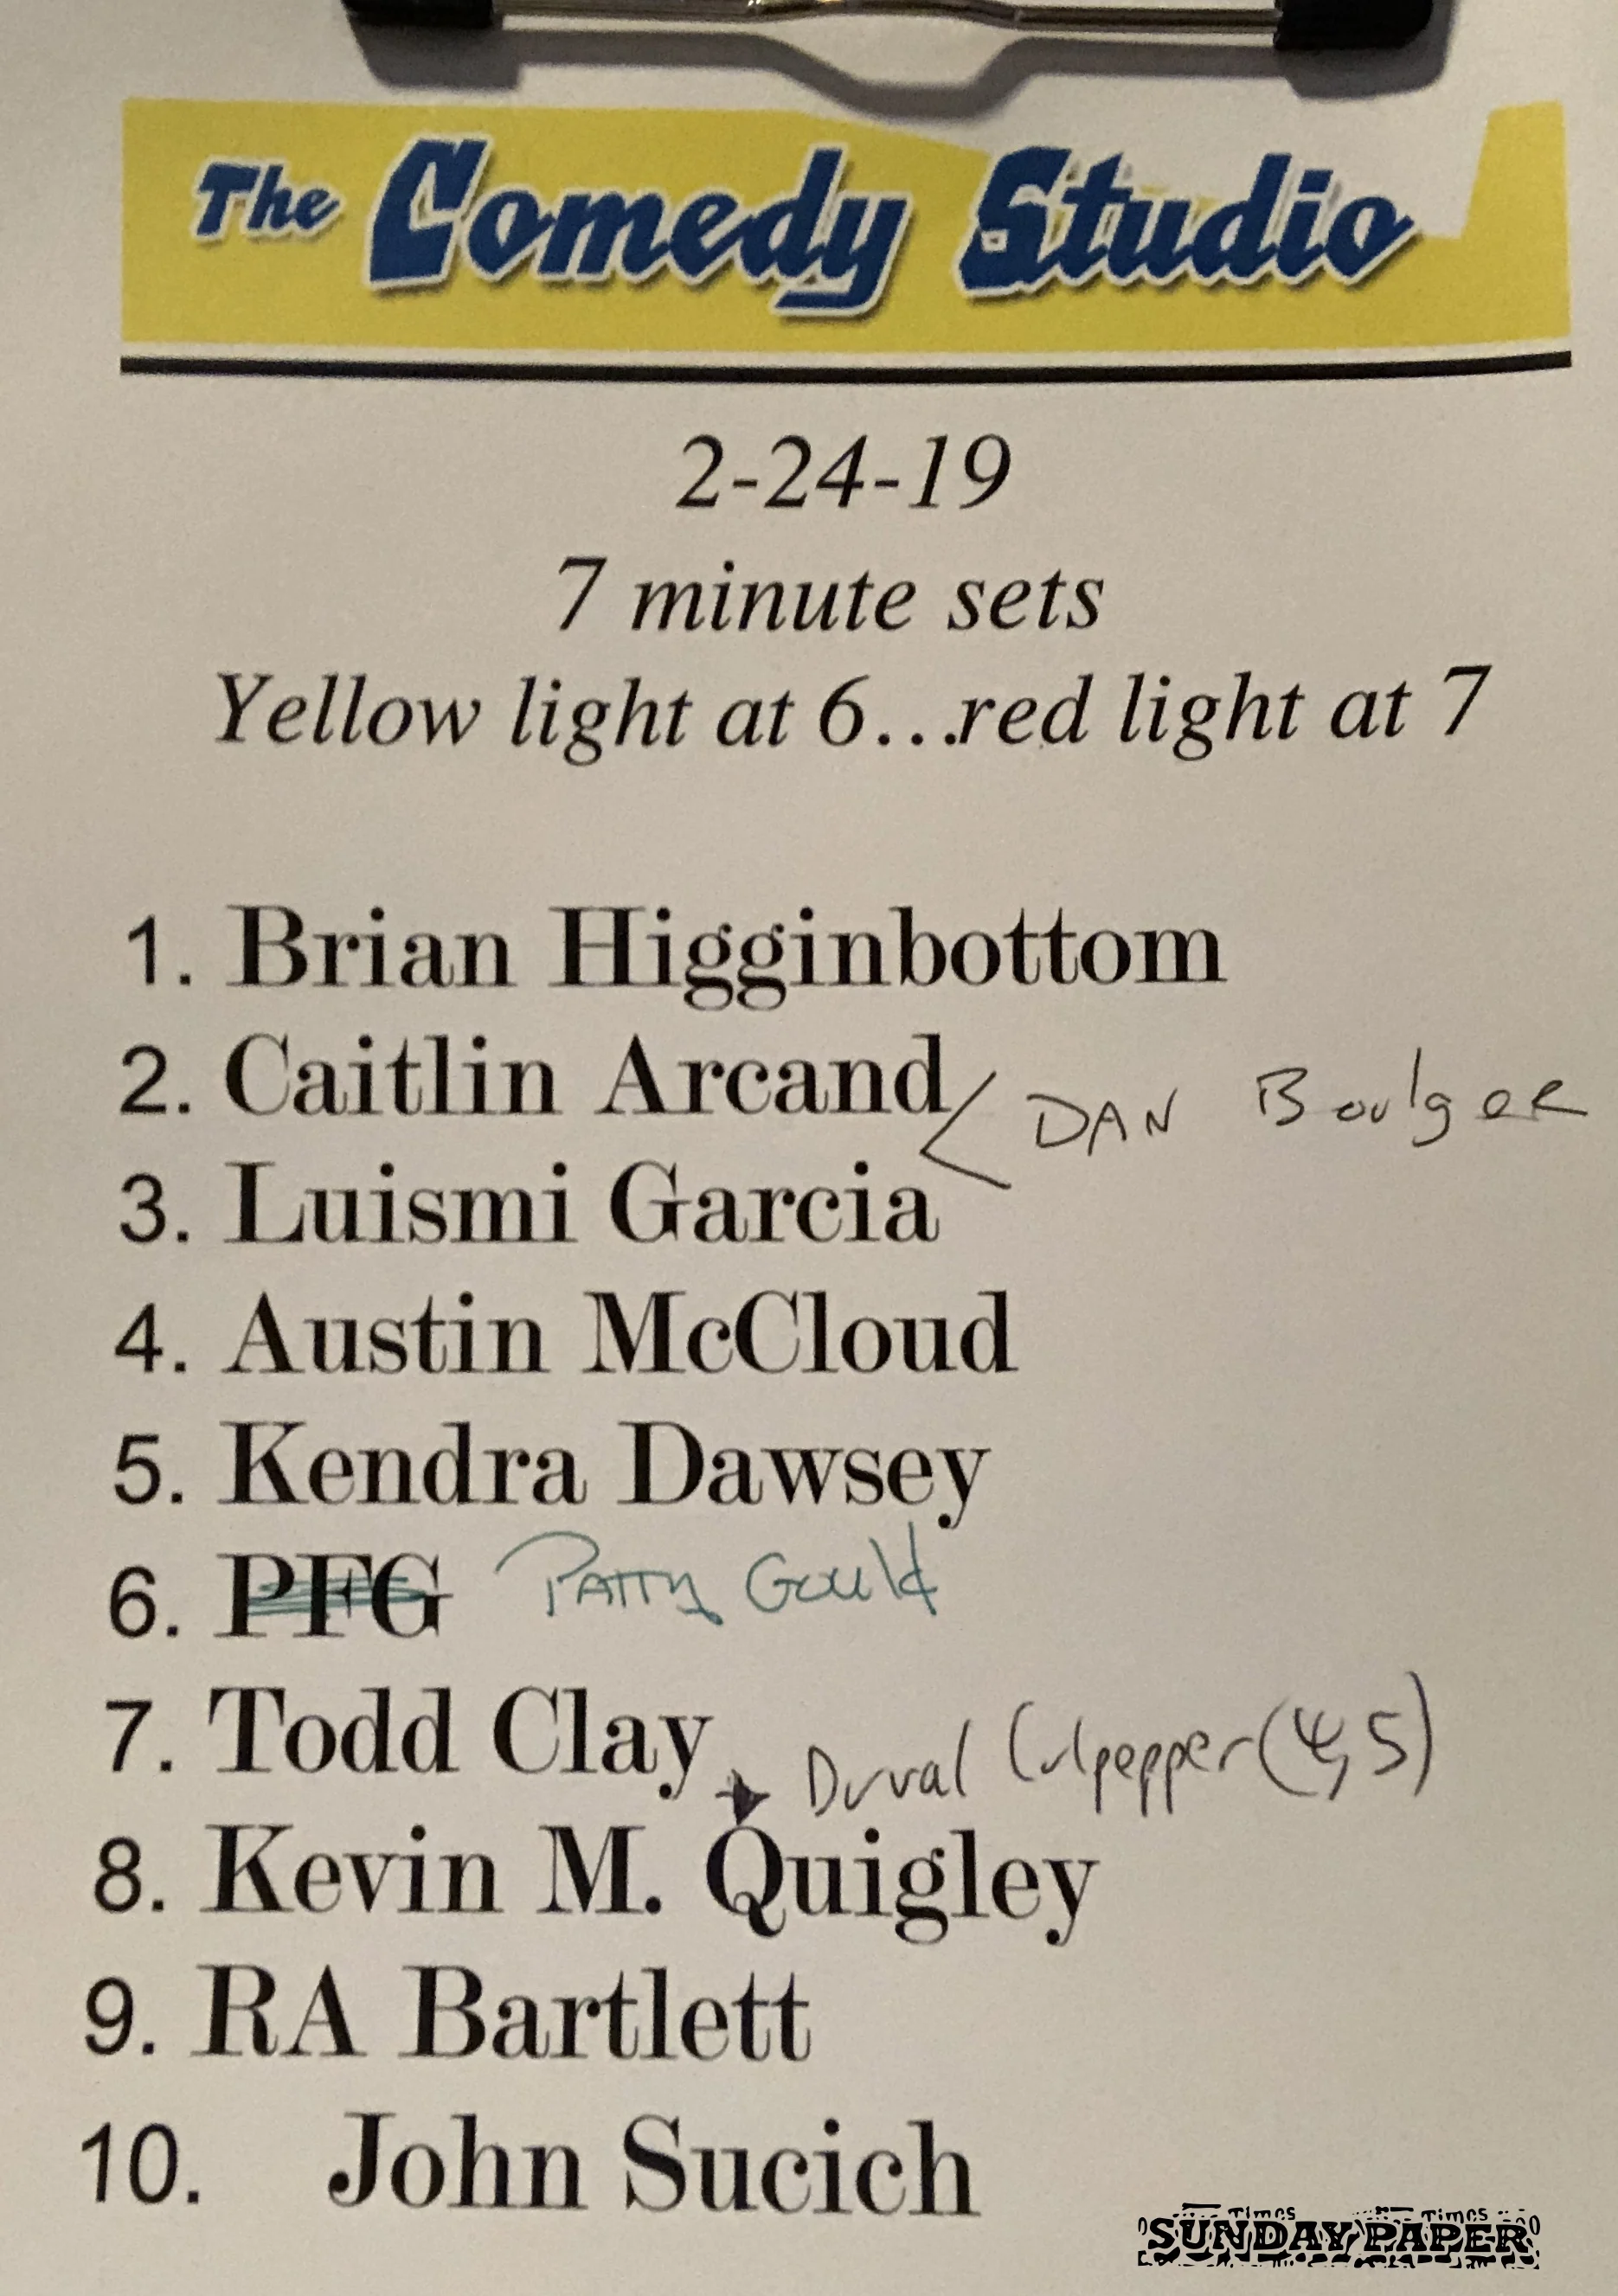 The Comedy Studio
2-24-19
7 minute sets
Yellow light at 6...red light at 7
1. Brian Higginbottom
2. Caitlin Arcand
< DAN Boulger
3. Luismi Garcia
4. Austin McCloud
5. Kendra Dawsey
6. PFG Patty Gould
7. Todd Clay
Duval Culpepper (4,5)
8. Kevin M. Quigley
9. RA Bartlett
10. John Sucich
SUNDAY PAPER